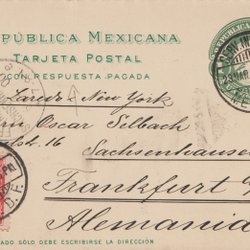 REPÚBLICA MEXICANA
TARJETA POSTAL
CON RESPUESTA PAGADA
Laredo - New York
Oscar Selbach
16
Sachsenhausen
Frankfurt
Alemania
SÓLO DEBE ESCRIBIRSE LA DIRECCIÓN